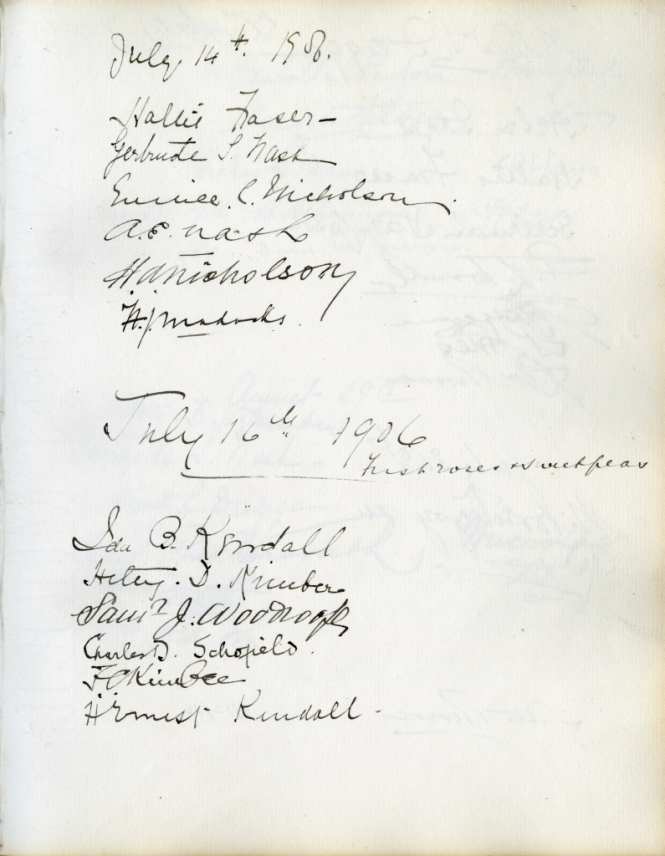 July 14th. 1906.
Hallie Fraser
Gertrude S. Nash
Eunice C. Nicholson.
A.E. Nash
H.A. Nicholson
H.J.
July 16th 1906
Fresh roses & sweet peas
Ida B. Kendall
Hetty. D. Kimber
Saml J. Woodroofe
Charles D. Schofield.
F C Kimber
H Ernest Kendall.